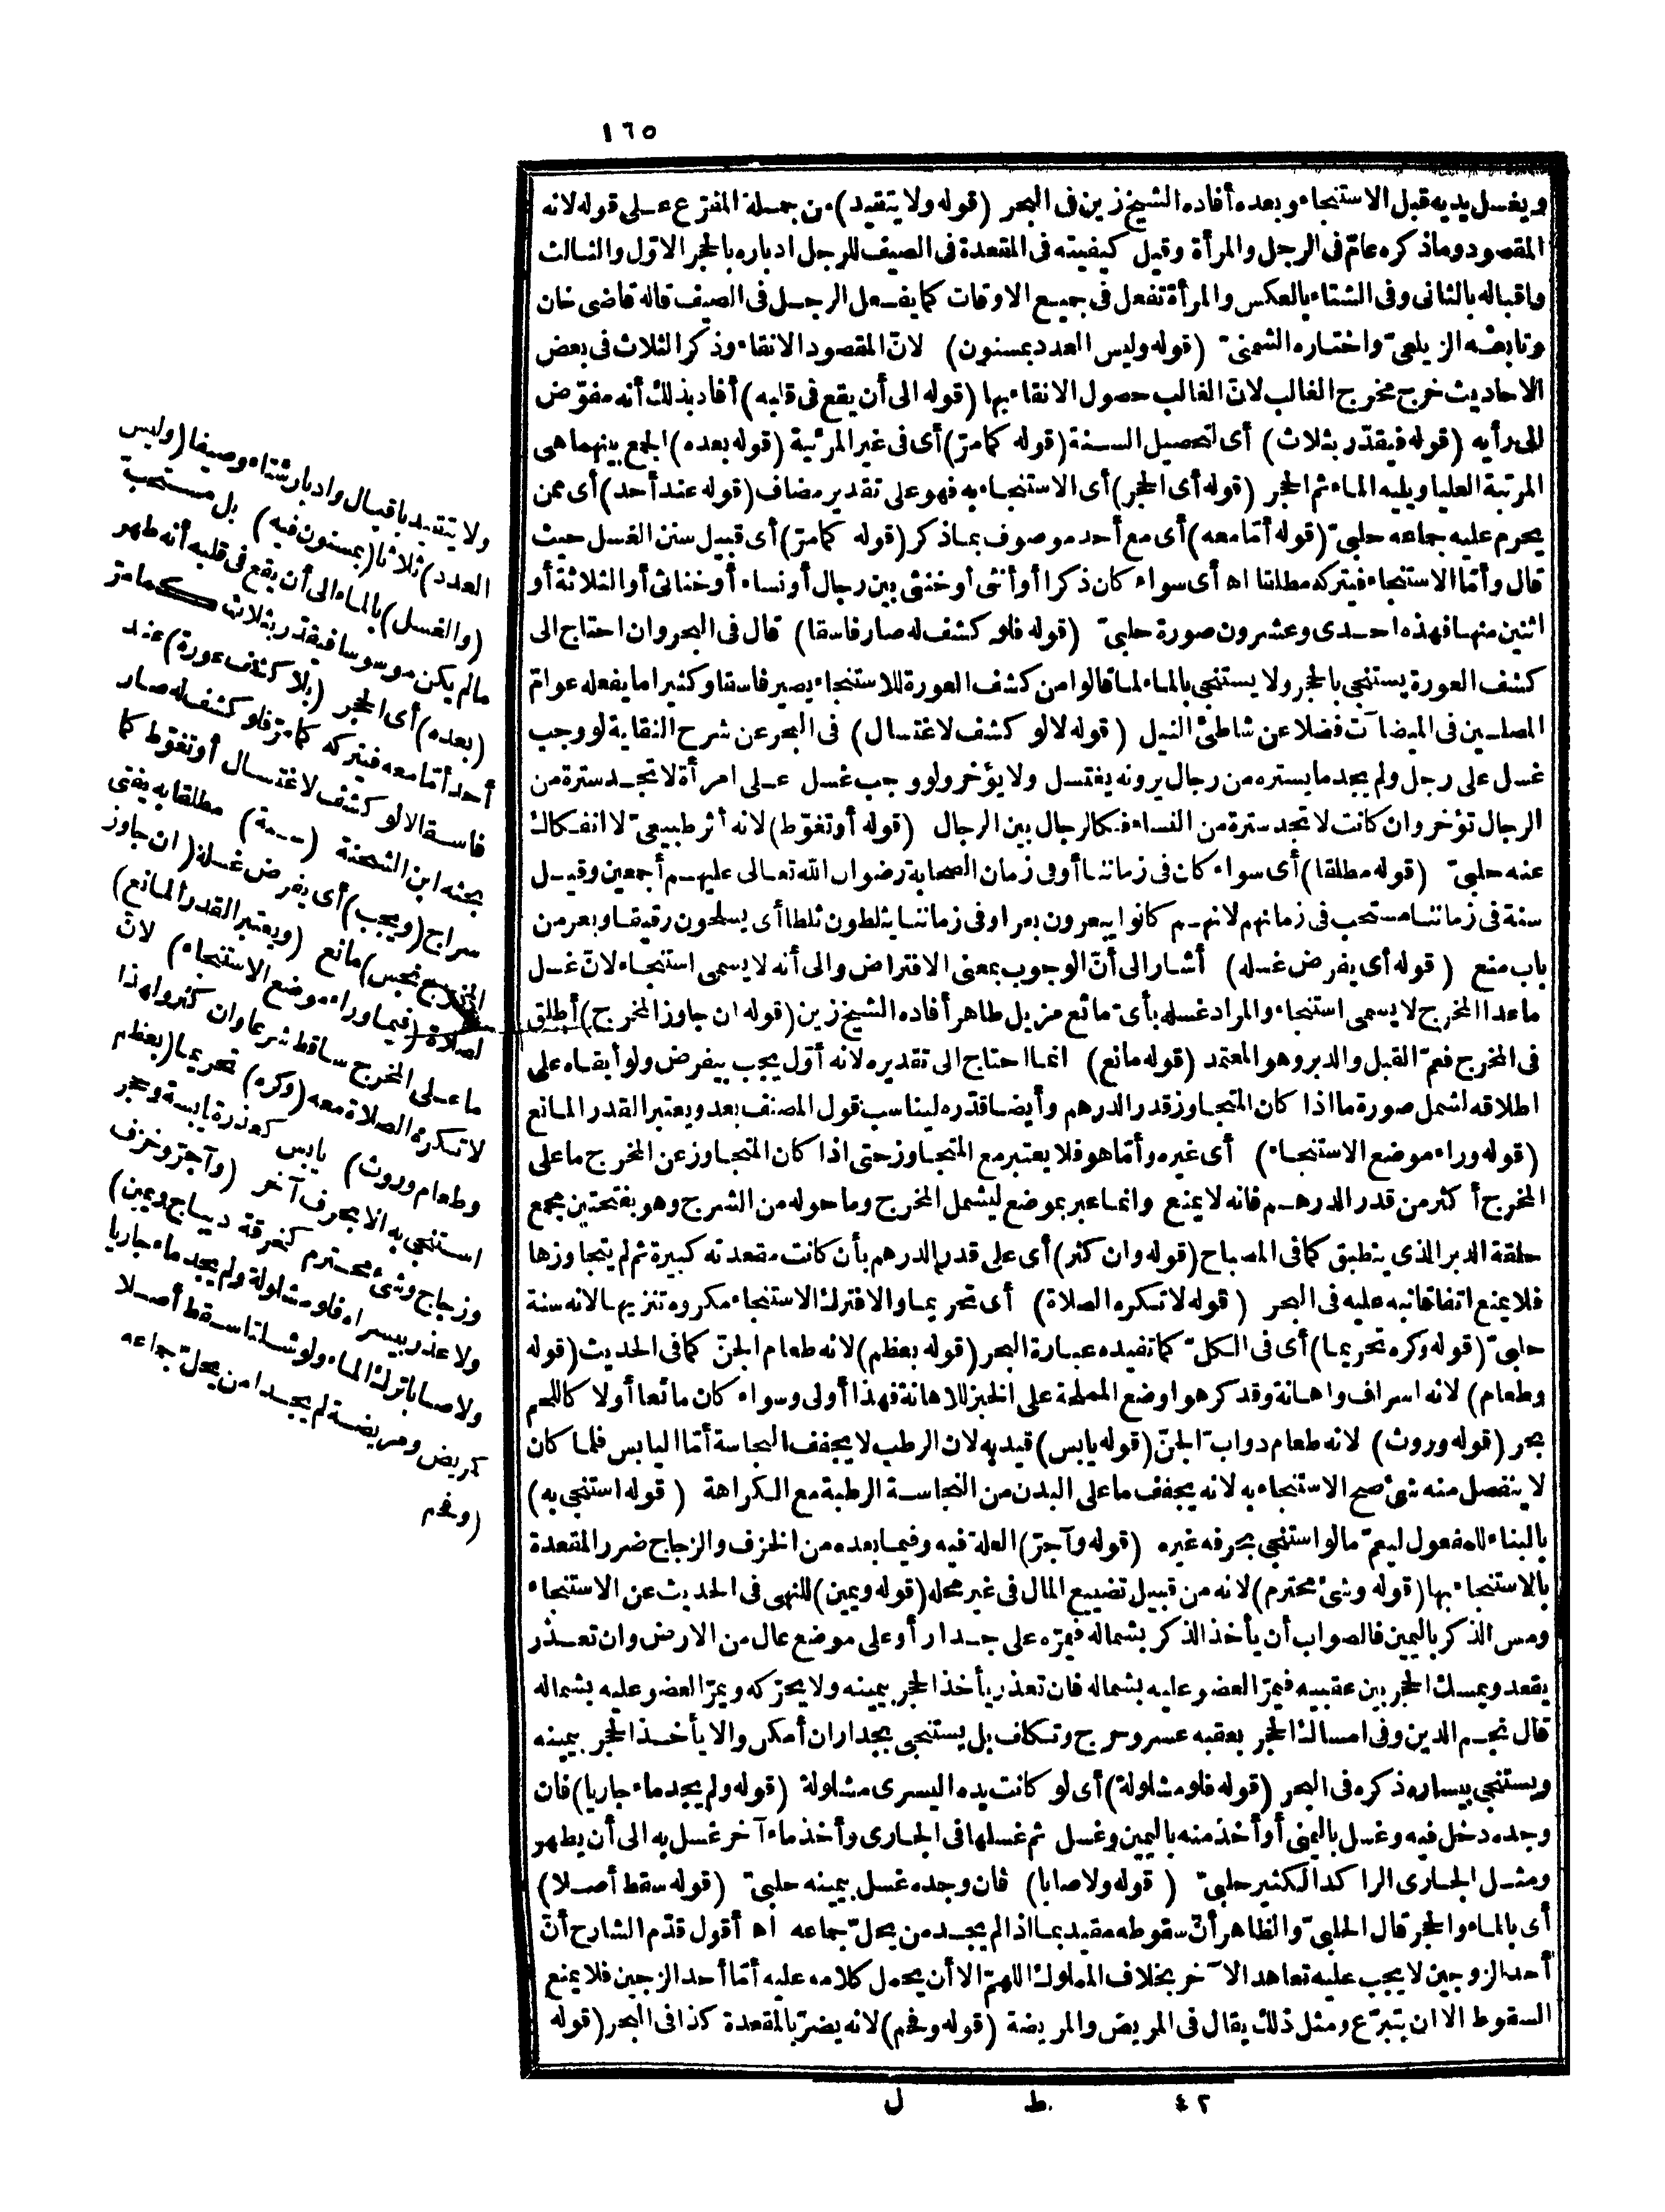 ١٦٥
ويغسل يديه قبل الاستنجاء وبعده أفاده الشيخ زين فى البحر (قوله ولا يتقيد) من جملة المفرّع على قوله لانه
المقصود وما ذكره عامّ فى الرجل والمرأة وقيل كيفيته فى المقعدة فى الصيف للرجل ادباره بالحجر الاوّل والثالث
واقباله بالثانى وفى الشتاء بالعكس والمرأة تفعل فى جميع الاوقات كما يفعل الرجل فى الصيف قاله قاضى خان
وتابعه الزيلعىّ واختاره الشمنىّ (قوله وليس العدد بمسنون) لانّ المقصود الانقاء وذكر الثلاث فى بعض
الاحاديث خرج مخرج الغالب لانّ الغالب حصول الانقاء بها (قوله الى أن يقع فى قلبه) أفاد بذلك أنه مفوّض
الى رأيه (قوله فيقدّر بثلاث) أى لتحصيل السنة (قوله كما مرّ) أى فى غير المرئية (قوله بعده) الجمع بينهما هى
المرتبة العليا ويليه الماء ثم الحجر (قوله أى الحجر) أى الاستنجاء به فهو على تقدير مضاف (قوله عند أحد) أى ممن
يحرم عليه جماعه حلبىّ (قوله أمّا معه) أى مع أحد موصوف بما ذكر (قوله كما مرّ) أى قبيل سنن الغسل حيث
قال وأمّا الاستنجاء فيتركه مطلقا اه أى سواء كان ذكرا أو أنثى أو خنثى بين رجال أو نساء أو خناثى أو الثلاثة أو
اثنين منها فهذه احدى وعشرون صورة حلبىّ (قوله فلو كشف له صار فاسقا) قال فى البحر وان احتاج الى
كشف العورة يستنجى بالحجر ولا يستنجى بالماء لما قالوا من كشف العورة للاستنجاء يصير فاسقا وكثيرا ما يفعله عوامّ
المصلين فى الميضآت فضلا عن شاطئ النيل (قوله لا لو كشف لاغتسال) فى البحر عن شرح النقاية لو وجب
غسل على رجل ولم يجد ما يستره من رجال يرونه يغتسل ولا يؤخر ولو وجب غسل على امرأة لا تجد سترة من
الرجال تؤخر وان كانت لا تجد سترة من النساء فكالرجال بين الرجال (قوله أو تغوّط) لانه أثر طبيعىّ لا انفكاك
عنه حلبىّ (قوله مطلقا) أى سواء كان فى زماننا أو فى زمان الصحابة رضوان الله تعالى عليهم أجمعين وقيل
سنة فى زماننا مستحب فى زمانهم لانهم كانوا يبعرون بعرا وفى زماننا يثلطون ثلطا أى يسلحون رقيقا وبعر من
باب منع (قوله أى يفرض غسله) أشار الى أنّ الوجوب بمعنى الافتراض والى أنه لا يسمى استنجاء لانّ غسل
ما عدا المخرج لا يسمى استنجاء والمراد غسله بأىّ مائع مزيل طاهر أفاده الشيخ زين (قوله ان جاوز المخرج) أطلق
فى المخرج فعمّ القبل والدبر وهو المعتمد (قوله مانع) انما احتاج الى تقديره لانه أوّل يجب بيفرض ولو أبقاه على
اطلاقه لشمل صورة ما اذا كان المتجاوز قدر الدرهم وأيضا قدره ليناسب قول المصنف بعد ويعتبر القدر المانع
(قوله وراء موضع الاستنجاء) أى غيره وأمّا هو فلا يعتبر مع المتجاوز حتى اذا كان المتجاوز عن المخرج ما على
المخرج أكثر من قدر الدرهم فانه لا يمنع وانما عبر بموضع ليشمل المخرج وما حوله من الشرج وهو بفتحتين مجمع
حلقة الدبر الذى ينطبق كما فى المصباح (قوله وان كثر) أى على قدر الدرهم بأن كانت مقعدته كبيرة ثم لم يتجاوزها
فلا يمنع اتفاقا نبه عليه فى البحر (قوله لا تكره الصلاة) أى تحريما والا فترك الاستنجاء مكروه تنزيها لانه سنة
حلبىّ (قوله وكره تحريما) أى فى الكلّ كما تفيده عبارة البحر (قوله بعظم) لانه طعام الجنّ كما فى الحديث (قوله
وطعام) لانه اسراف واهانة وقد كرهوا وضع المملحة على الخبز للاهانة فهذا أولى وسواء كان مائعا أولا كاللحم
بحر (قوله وروث) لانه طعام دوابّ الجنّ (قوله يابس) قيد به لان الرطب لا يجفف النجاسة أمّا اليابس فلما كان
لا ينفصل منه شئ صح الاستنجاء به لانه يجفف ما على البدن من النجاسة الرطبة مع الكراهة (قوله استنجى به)
بالبناء للمفعول ليعمّ ما لو استنجى بحرفه غيره (قوله وآجرّ) العلة فيه وفيما بعده من الخزف والزجاج ضرر المقعدة
بالاستنجاء بها (قوله وشئ محترم) لانه من قبيل تضييع المال فى غير محله (قوله ويمين) للنهى فى الحديث عن الاستنجاء
ومس الذكر باليمين فالصواب أن يأخذ الذكر بشماله فيمرّه على جدار أو على موضع عال من الارض وان تعذر
يقعد ويمسك الحجر بين عقبيه فيمرّ العضو عليه بشماله فان تعذر يأخذ الحجر بيمينه ولا يحرّكه ويمرّ العضو عليه بشماله
قال نجم الدين وفى امساك الحجر بعقبه عسر وحرج وتكلف بل يستنجى بجدار ان أمكن والا يأخذ الحجر بيمينه
ويستنجى بيساره ذكره فى البحر (قوله فلو مشلولة) أى لو كانت يده اليسرى مشلولة (قوله ولم يجد ماء جاريا) فان
وجده دخل فيه وغسل باليمنى أو أخذ منه باليمين وغسل ثم غسلها فى الجارى وأخذ ماء آخر غسل به الى أن يطهر
ومثل الجارى الراكد الكثير حلبىّ (قوله ولا صابا) فان وجده غسل بيمينه حلبىّ (قوله سقط أصلا)
أى بالماء والحجر قال الحلبىّ والظاهر أنّ سقوطه مقيد بما اذا لم يجد من يحلّ جماعه اه أقول قدّم الشارح أنّ
أحد الزوجين لا يجب عليه تعاهد الآخر بخلاف المملوك اللهمّ الا أن يحمل كلامه عليه أمّا أحد الزوجين فلا يمنع
السقوط الا ان يتبرّع ومثل ذلك يقال فى المريض والمريضة (قوله وفحم) لانه يضرّ بالمقعدة كذا فى البحر (قوله
ولا يتقيد باقبال وادبار شتاء وصيفا (وليس
العدد) ثلاثا (بمسنون فيه) بل مستحب
(والغسل) بالماء الى أن يقع فى قلبه أنه طهر
ما لم يكن موسوسا فيقدر بثلاث كما مرّ
(بعده) أى الحجر (بلا كشف عورة) عند
أحد أمّا معه فيتركه كما مرّ فلو كشف له صار
فاسقا لا لو كشف لاغتسال أو تغوّط كما
بحثه ابن الشحنة (سنة) مطلقا به يفتى
سراج (ويجب) أى يفرض غسله (ان جاوز
المخرج نجس) مانع (ويعتبر القدر المانع)
لصلاة (فيما وراء موضع الاستنجاء) لانّ
ما على المخرج ساقط شرعا وان كثر ولهذا
لا تكره الصلاة معه (وكره) تحريما (بعظم
وطعام وروث) يابس كعذرة يابسة وحجر
استنجى به الا بحرف آخر (وآجرّ وخزف
وزجاج وشئ محترم) كخرقة ديباج (ويمين)
ولا عذر بيسراه فلو مشلولة ولم يجد ماء جاريا
ولا صابا ترك الماء ولو شلتا سقط أصلا
كمريض ومريضة لم يجدا من يحلّ جماعه
(وفحم
٤٢ ط ل